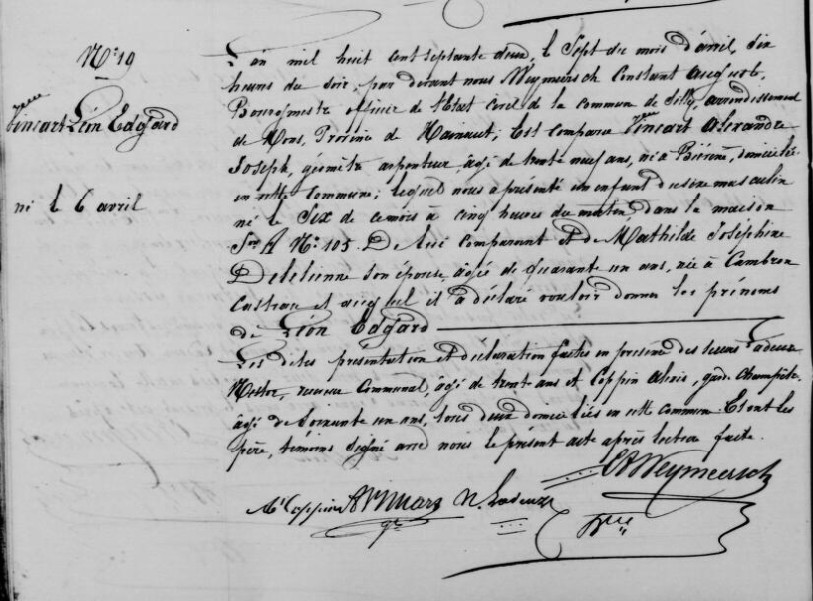 N° 19
Vincart Léon Edgard
né le 6 avril
L'an mil huit cent septante deux, le Sept du mois d'avril, dix
heures du soir, par devant nous Weymeersch Constant Auguste,
Bourgmestre officier de l'Etat Civil de la commune de Silly, arrondissement
de Mons, Province de Hainaut; Est comparu Vincart Alexandre
Joseph, géomètre arpenteur, âgé de trente neuf ans, né à domicilié
en cette Commune; lequel nous a présenté un enfant du sexe masculin
né le Six de ce mois à cinq heures du matin dans la maison
Son A N° 105. De lui comparant et de Mathilde Joséphine
Deletienne son épouse âgée de quarante un ans, née à Cambron
Casteau et auquel il a déclaré vouloir donner les prénoms
de Léon Edgard
Les dites présentation et déclaration faites en présence des témoins Ladeuze
Nestor, receveur Communal, âgé de trente ans et Coppin Alexis, garde Champêtre
âgé de soixante un ans, tous deux domiciliés en cette commune. Et ont les
père, témoins signé avec nous le présent acte après lecture faite.
CA Weymeersch
Al Coppin A Vincart N. Ladeuze